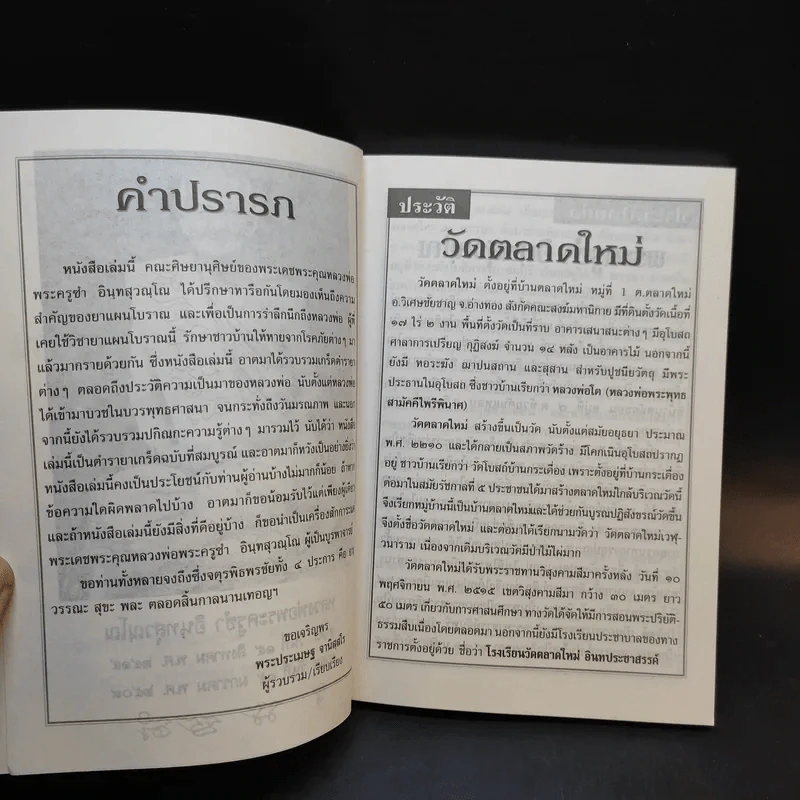 คำปรารภ
หนังสือเล่มนี้ คณะศิษยานุศิษย์ของพระเดชพระคุณหลวงพ่อ
พระครูซำ อินฺทสุวณฺโณ ได้ปรึกษาหารือกันโดยมองเห็นถึงความ
สำคัญของยาแผนโบราณ และเพื่อเป็นการรำลึกนึกถึงหลวงพ่อ ผู้ที่
เคยใช้วิชายาแผนโบราณนี้ รักษาชาวบ้านให้หายจากโรคภัยต่างๆ มา
แล้วมากรายด้วยกัน ซึ่งหนังสือเล่มนี้ อาตมาได้รวบรวมเกร็ดตำรายา
ต่างๆ ตลอดถึงประวัติความเป็นมาของหลวงพ่อ นับตั้งแต่หลวงพ่อ
ได้เข้ามาบวชในบวรพุทธศาสนา จนกระทั่งถึงวันมรณภาพ และนอก
จากนี้ยังได้รวบรวมปกิณกะความรู้ต่างๆ มารวมไว้ นับได้ว่า หนังสือ
เล่มนี้เป็นตำรายาเกร็ดฉบับที่สมบูรณ์ และอาตมาก็หวังเป็นอย่างยิ่งว่า
หนังสือเล่มนี้คงเป็นประโยชน์กับท่านผู้อ่านบ้างไม่มากก็น้อย ถ้าหาก
ข้อความใดผิดพลาดไปบ้าง อาตมาก็ขอน้อมรับไว้แต่เพียงผู้เดียว
และถ้าหนังสือเล่มนี้ยังมีสิ่งที่ดีอยู่บ้าง ก็ขอนำเป็นเครื่องสักการะแด่
พระเดชพระคุณหลวงพ่อพระครูซำ อินฺทสุวณฺโณ ผู้เป็นบูรพาจารย์
ขอท่านทั้งหลายจงถึงซึ่งจตุรพิธพรชัยทั้ง ๔ ประการ คือ อายุ
วรรณะ สุขะ พละ ตลอดสิ้นกาลนานเทอญฯ
ขอเจริญพร
พระประเมษฐ จานิสฺสโร
ผู้รวบรวม/เรียบเรียง
ประวัติ
วัดตลาดใหม่
วัดตลาดใหม่ ตั้งอยู่ที่บ้านตลาดใหม่ หมู่ที่ 1 ต.ตลาดใหม่
อ.วิเศษชัยชาญ จ.อ่างทอง สังกัดคณะสงฆ์มหานิกาย มีที่ดินตั้งวัดเนื้อที่
๑๗ ไร่ ๒ งาน พื้นที่ตั้งวัดเป็นที่ราบ อาคารเสนาสนะต่างๆ มีอุโบสถ
ศาลาการเปรียญ กุฏิสงฆ์ จำนวน ๑๔ หลัง เป็นอาคารไม้ นอกจากนี้
ยังมี หอระฆัง ฌาปนสถาน และสุสาน สำหรับปูชนียวัตถุ มีพระ
ประธานในอุโบสถ ซึ่งชาวบ้านเรียกว่า หลวงพ่อโต (หลวงพ่อพระพุทธ
สามัคคีไพรีพินาศ)
วัดตลาดใหม่ สร้างขึ้นเป็นวัด นับตั้งแต่สมัยอยุธยา ประมาณ
พ.ศ. ๒๒๑๐ และได้กลายเป็นสภาพวัดร้าง มีโคกเนินอุโบสถปรากฏ
อยู่ ชาวบ้านเรียกว่า วัดโบสถ์บ้านกระเดื่อง เพราะตั้งอยู่ที่บ้านกระเดื่อง
ต่อมาในสมัยรัชกาลที่ ๕ ประชาชนได้มาสร้างตลาดใหม่ใกล้บริเวณวัดนี้
จึงเรียกหมู่บ้านนี้เป็นบ้านตลาดใหม่และได้ช่วยกันบูรณปฏิสังขรณ์วัดขึ้น
จึงตั้งชื่อวัดตลาดใหม่ และต่อมาได้เรียกนามวัดว่า วัดตลาดใหม่เวฬุ
วนาราม เนื่องจากเดิมบริเวณวัดมีป่าไม้ไผ่มาก
วัดตลาดใหม่ได้รับพระราชทานวิสุงคามสีมาครั้งหลัง วันที่ ๑๐
พฤศจิกายน พ.ศ. ๒๕๑๕ เขตวิสุงคามสีมา กว้าง ๓๐ เมตร ยาว
๕๐ เมตร เกี่ยวกับการศาสนศึกษา ทางวัดได้จัดให้มีการสอนพระปริยัติ-
ธรรมสืบเนื่องโดยตลอดมา นอกจากนี้ยังมีโรงเรียนประชาบาลของทาง
ราชการตั้งอยู่ด้วย ชื่อว่า โรงเรียนวัดตลาดใหม่ อินทประชาสรรค์